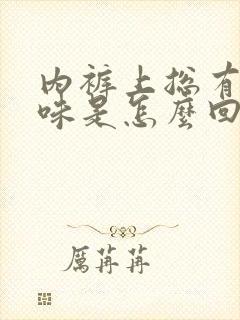 内裤上总有
味是怎麼回
厲苒苒